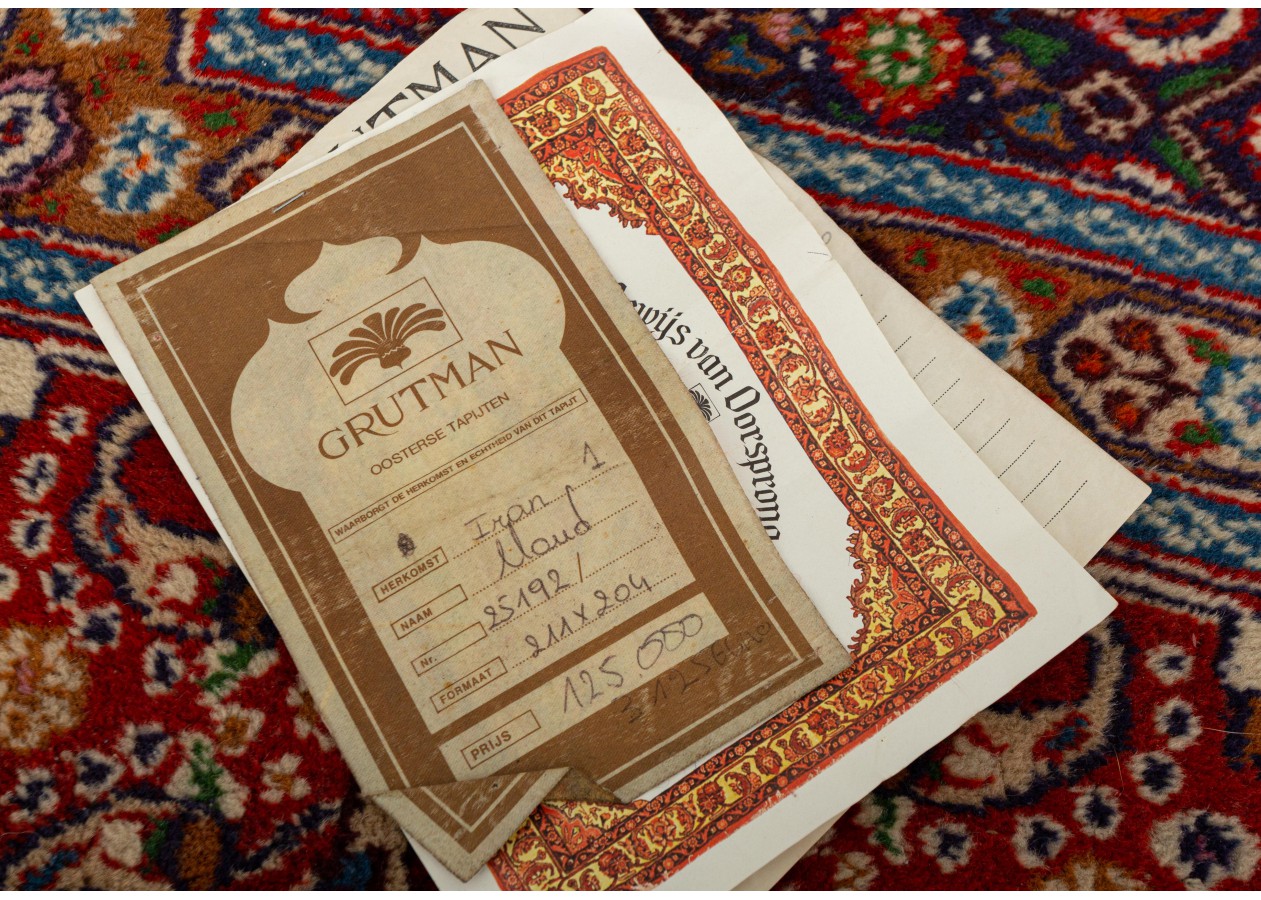 UTMAN
GRUTMAN
OOSTERSE TAPIJTEN
WAARBORGT DE HERKOMST EN ECHTHEID VAN DIT TAPIJT
1
HERKOMST Iran
NAAM Moud
Nr. 25192/
FORMAAT 211x204
PRIJS 125.000
van Oorsprong